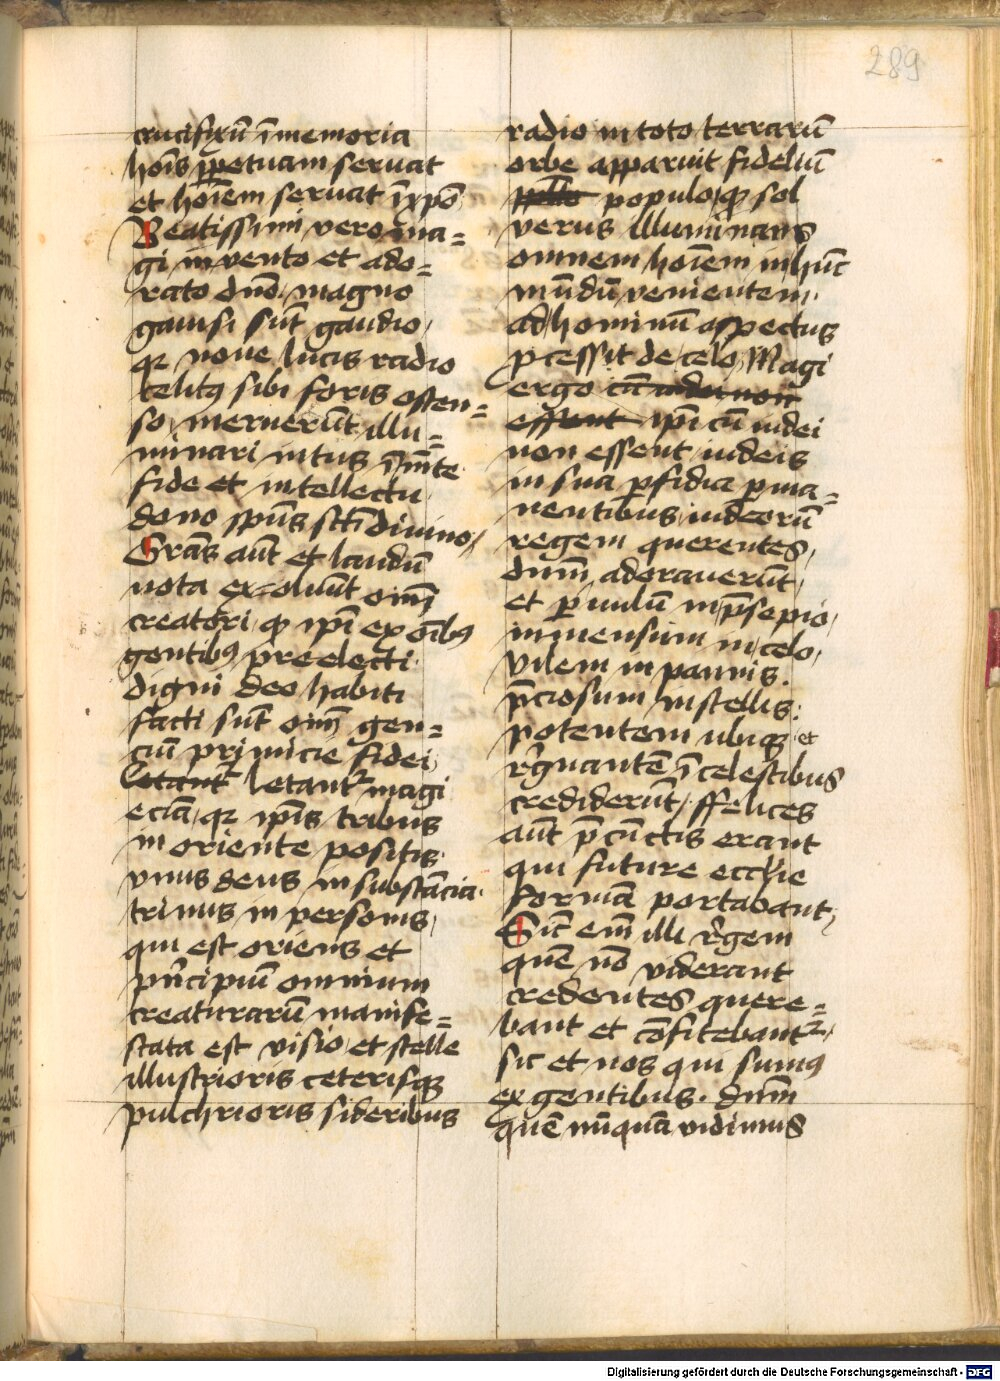 289
crucifixū ī memoria
hoīs ꝑpetuam servat
et hoīem servat ī xpō
Beatissimi vero ma=
gi invento et ado=
rato dnō magno
gavisi sūt gaudio
qꝫ nove lucis radio
celitꝯ sibi foris osten=
so meruerūt illu=
minari intus ī mēte
fide et intellectu
dono spūs sctī divino
Grās aūt et laudū
vota exolvūt omī
creatori qꝫ ipī ex oībꝯ
gentibꝯ preelecti
digni deo habiti
facti sūt omī gen=
ciū primicie fidei
letant᷑ letant᷑ magi
eciā qꝫ ipīs tribus
in oriente positis
unus deus in substācia
trinus in personis
qui est oriens et
pn̄cipiū omnium
creaturarū manife=
stata est visio et stelle
illustrioris ceterisqꝫ
pulchrioris sideribus
radio in toto terrarū
orbe apparuit fideliū
populo qꝫ sol
verus illuminans
omnem hoīem in hūc
mūdū venientem
ad hominū aspectus
ꝓcessit de celo Magi
ergo cū iudei non
essent ipī cū iudei
non essent iudeis
in sua ꝑfidia ꝑma=
nentibus iudeorū
regem querentes
dnm̄ adoraverūt
et ꝑvulū in p̄sepio
inmensum in celo
vilem in pannis.
p̄ciosum in stellis:
potentem ubiqꝫ et
r̄gnantē ī celestibus
crediderūt, ffelices
aūt p̄ cūctis erant
qui future ecclīe
formā portabant
Sic em̄ illi r̄gem
quē nō viderant
credentes quere=
bant et cōfitebant᷑
sic et nos qui sumꝯ
ex gentibus. dnm̄
quē nūquā vidimus
Digitalisierung gefördert durch die Deutsche Forschungsgemeinschaft - DFG